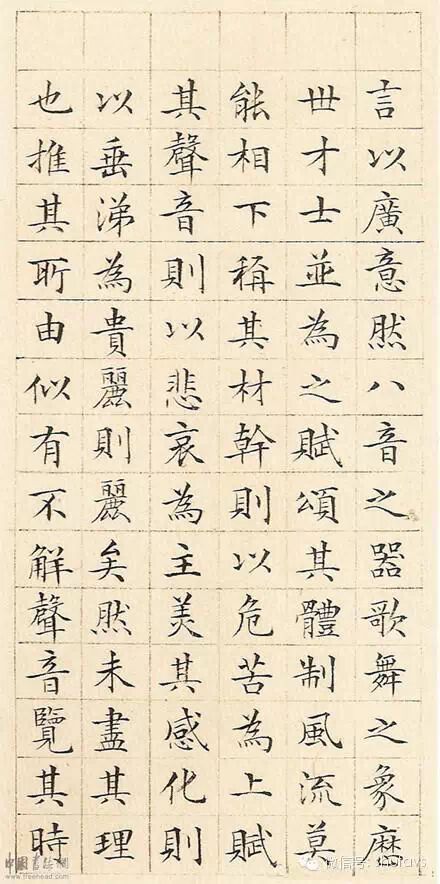 言以廣意然八音之器歌舞之象歷
世才士並為之賦頌其體制風流莫
能相下稱其材幹則以危苦為上賦
其聲音則以悲哀為主美其感化則
以垂涕為貴麗則麗矣然未盡其理
也推其所由似有不解聲音覽其時
中國書法網
www.freehead.com
微信号: shufavs